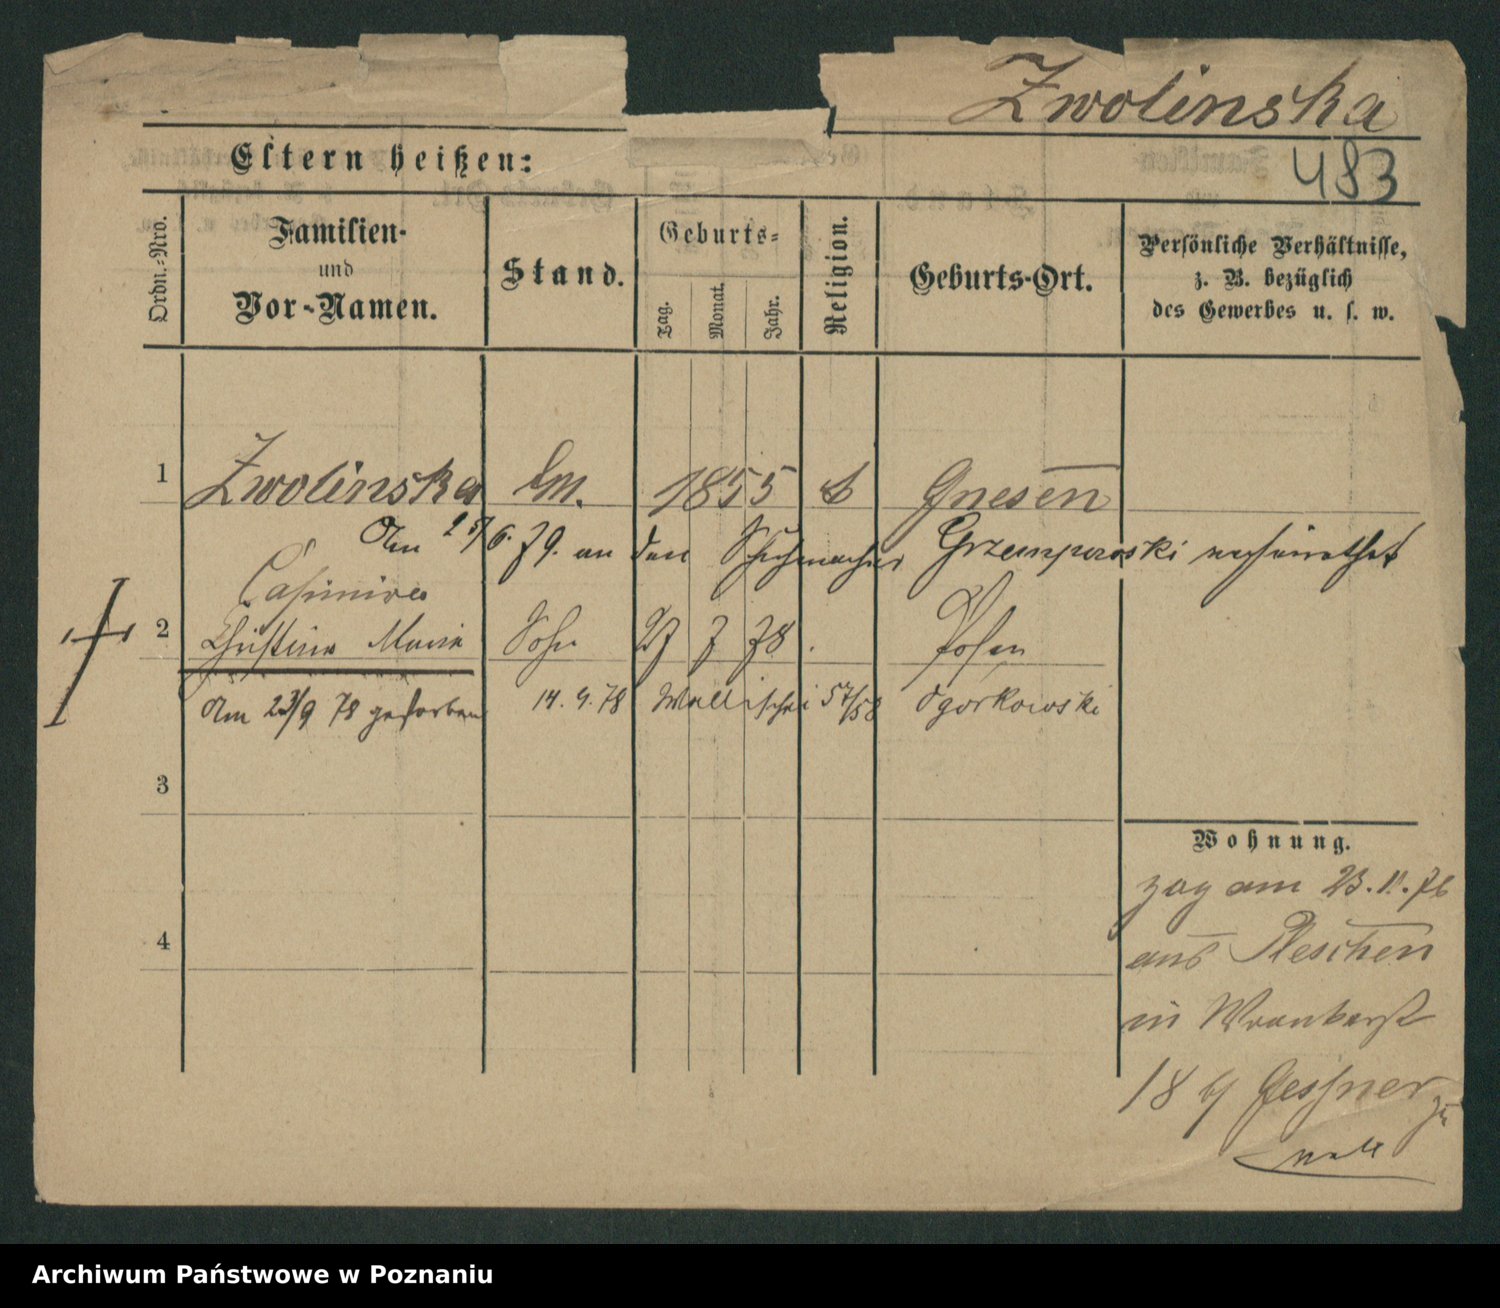 Zwolinska
483
Eltern heißen:
Ordn.-Nro.
Familien-
und
Vor-Namen.
Stand.
Geburts-
Tag.
Monat.
Jahr.
Religion.
Geburts-Ort.
Persönliche Verhältnisse,
z. B. bezüglich
des Gewerbes u. s. w.
1 Zwolinska 1855 Gnesen
Am 25/6. 79. an den Schuhmacher Grzempowski verheirathet
Casimira
2 Christine Marie 27 7 78 Posen
Am 23/9 78 gestorben 14. 9. 78 Wallischei 57/58 Ogorkowski
3
4
Wohnung.
zog am 23. 11. 76
aus Pleschen
in
18 b/ Gessner zu